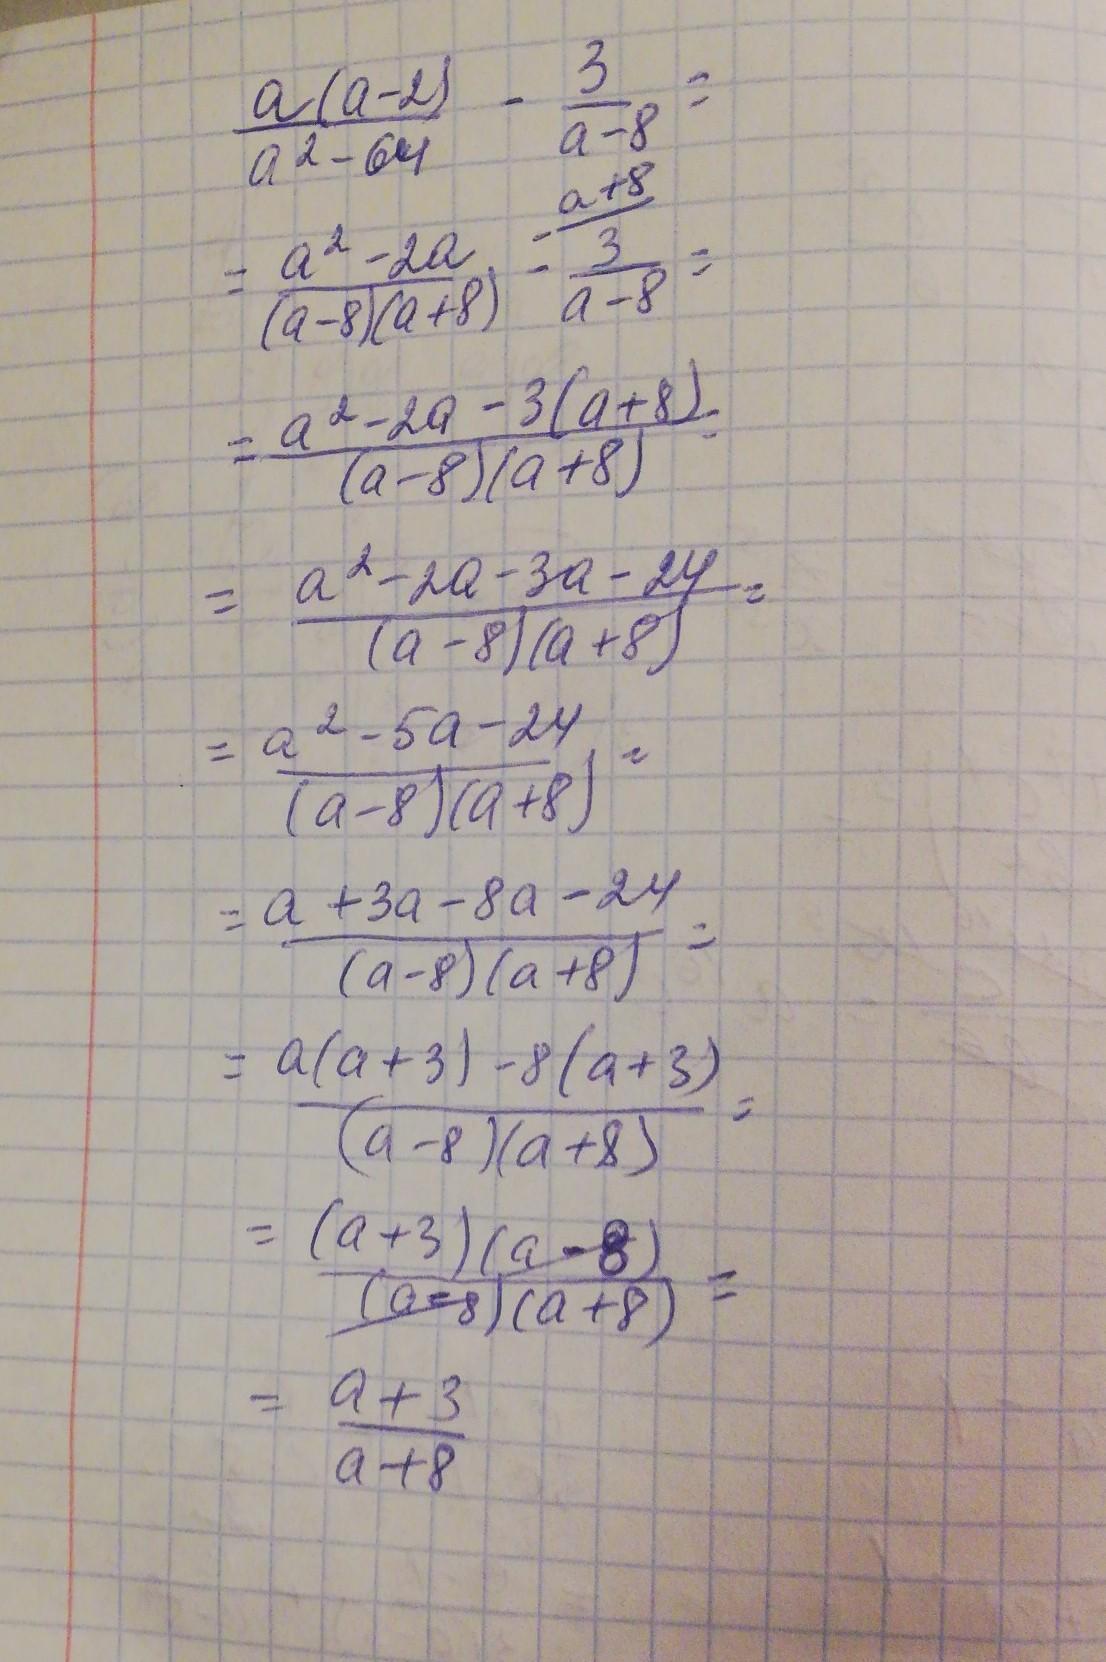 a(a-2)/a²-64 - 3/a-8 =
= a²-2a/(a-8)(a+8) - a+8/ 3/a-8 =
= a²-2a-3(a+8)/(a-8)(a+8) =
= a²-2a-3a-24/(a-8)(a+8) =
= a²-5a-24/(a-8)(a+8) =
= a+3a-8a-24/(a-8)(a+8) =
= a(a+3)-8(a+3)/(a-8)(a+8) =
= (a+3)(a-8)/(a-8)(a+8) =
= a+3/a+8